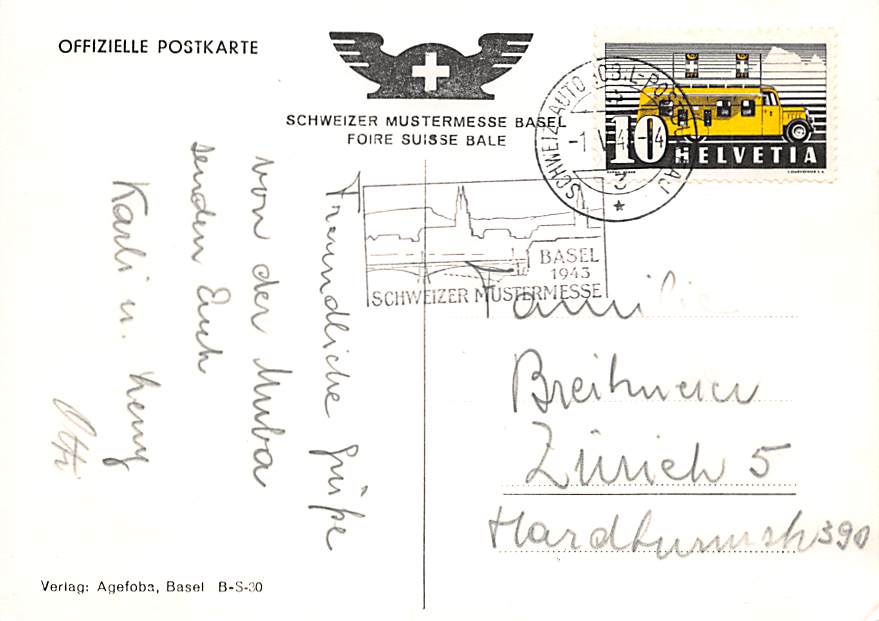 OFFIZIELLE POSTKARTE
SCHWEIZER MUSTERMESSE BASEL
FOIRE SUISSE BALE
SCHWEIZ. AUTOMOBIL-POSTBUREAU
-1.V.43-14
10 HELVETIA
BASEL
1943
SCHWEIZER MUSTERMESSE
Freundliche Grüße
von der Muba
senden Euch
Karli u.
Familie
Zürich 5
Hardturmstr 390
Verlag: Agefoba, Basel B-S-30